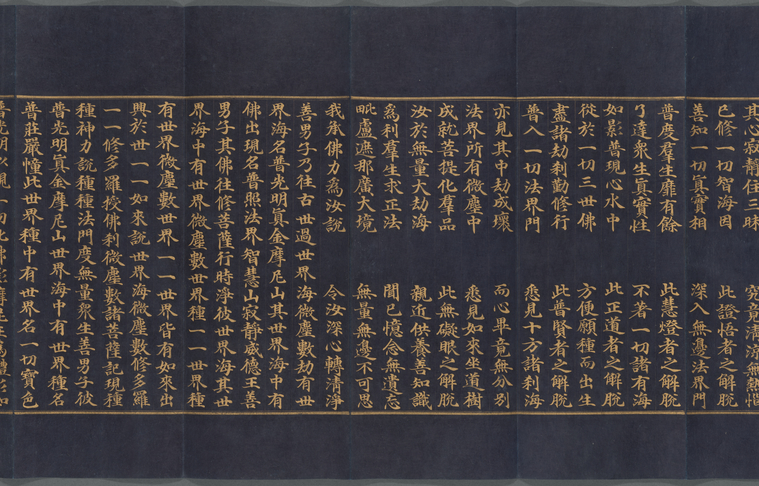 其心寂靜住三昧　究竟清涼無熱惱
已修一切智海因　此證悟者之解脫
善知一切真實相　深入無邊法界門
普度羣生靡有餘　此慧燈者之解脫
了達衆生真實性　不著一切諸有海
如影普現心水中　此正道者之解脫
從於一切三世佛　方便願種而出生
盡諸劫剎勤修行　此普賢者之解脫
普入一切法界門　悉見十方諸剎海
亦見其中劫成壞　而心畢竟無分別
法界所有微塵中　悉見如來坐道樹
成就菩提化羣品　此無礙眼之解脫
汝於無量大劫海　親近供養善知識
爲利羣生求正法　聞已憶念無遺忘
毗盧遮那廣大境　無量無邊不可思
我承佛力爲汝說　令汝深心轉清淨
善男子乃往古世過世界海微塵數劫有世
界海名普光明真金摩尼山其世界海中有
佛出現名普照法界智慧山寂靜威德王善
男子其佛往修菩薩行時淨彼世界海其世
界海中有世界微塵數世界種一一世界種
有世界微塵數世界一一世界皆有如來出
興於世一一如來說世界海微塵數修多羅
一一修多羅授佛剎微塵數諸菩薩記現種
種神力說種種法門度無量衆生善男子彼
普光明真金摩尼山世界海中有世界種名
普莊嚴幢此世界種中有世界名一切寶色